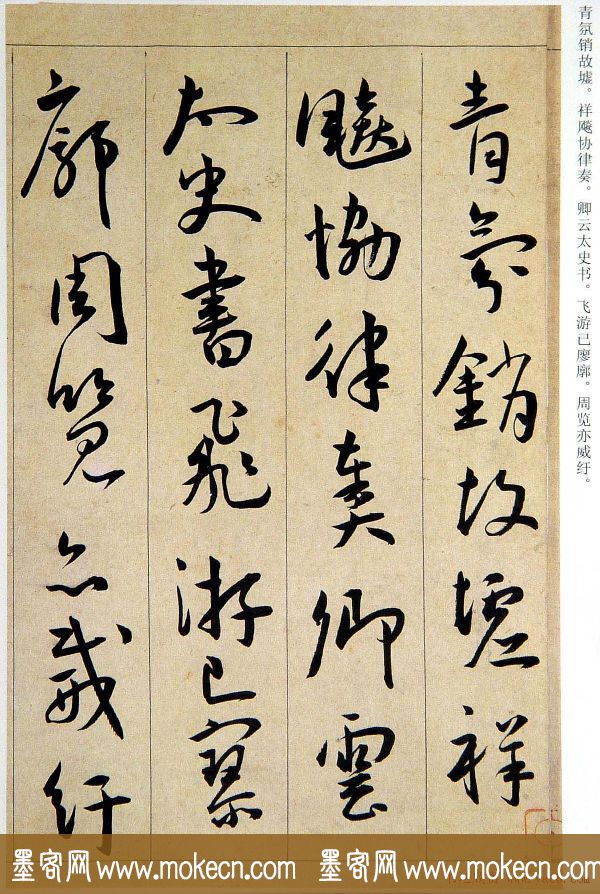 青氛销故墟。祥飚协律奏。卿云太史书。飞游已廖廓。周览亦威纡。
青氛銷故墟祥
飈恊律奏卿雲
太史書飛游已寥
廓周覽亦威紆
墨客网 www.mokecn.com 墨客网 www.mokecn.com